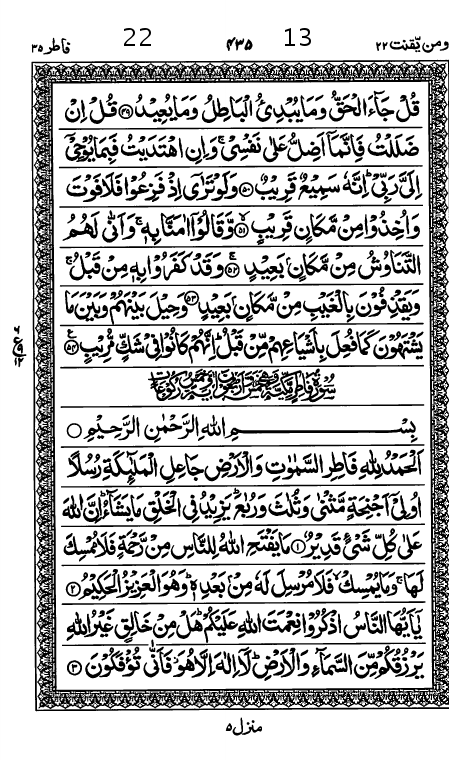 ومن یقنت ۲۲ 13 ۴۳۵ 22 فاطر ۳۵
قُلْ جَآءَ الْحَقُّ وَمَا يُبْدِئُ الْبَاطِلُ وَمَا يُعِيْدُ ﴿۴۹﴾ قُلْ اِنْ
ضَلَلْتُ فَاِنَّمَآ اَضِلُّ عَلٰى نَفْسِيْ ۚ وَاِنِ اهْتَدَيْتُ فَبِمَا يُوْحِيْٓ
اِلَيَّ رَبِّيْ ؕ اِنَّهٗ سَمِيْعٌ قَرِيْبٌ ﴿۵۰﴾ وَلَوْ تَرٰٓى اِذْ فَزِعُوْا فَلَا فَوْتَ
وَاُخِذُوْا مِنْ مَّكَانٍ قَرِيْبٍ ﴿۵۱﴾ وَّقَالُوْٓا اٰمَنَّا بِهٖ ۚ وَاَنّٰى لَهُمُ
التَّنَاوُشُ مِنْ مَّكَانٍۭ بَعِيْدٍ ﴿۵۲﴾ وَّقَدْ كَفَرُوْا بِهٖ مِنْ قَبْلُ ۚ
وَيَقْذِفُوْنَ بِالْغَيْبِ مِنْ مَّكَانٍۭ بَعِيْدٍ ﴿۵۳﴾ وَحِيْلَ بَيْنَهُمْ وَبَيْنَ مَا
يَشْتَهُوْنَ كَمَا فُعِلَ بِاَشْيَاعِهِمْ مِّنْ قَبْلُ ؕ اِنَّهُمْ كَانُوْا فِيْ شَكٍّ مُّرِيْبٍ ﴿۵۴﴾
بِسْمِ اللّٰهِ الرَّحْمٰنِ الرَّحِيْمِ
اَلْحَمْدُ لِلّٰهِ فَاطِرِ السَّمٰوٰتِ وَالْاَرْضِ جَاعِلِ الْمَلٰٓئِكَةِ رُسُلًا
اُولِيْٓ اَجْنِحَةٍ مَّثْنٰى وَثُلٰثَ وَرُبٰعَ ؕ يَزِيْدُ فِي الْخَلْقِ مَا يَشَآءُ ؕ اِنَّ اللّٰهَ
عَلٰى كُلِّ شَيْءٍ قَدِيْرٌ ﴿۱﴾ مَا يَفْتَحِ اللّٰهُ لِلنَّاسِ مِنْ رَّحْمَةٍ فَلَا مُمْسِكَ
لَهَا ۚ وَمَا يُمْسِكْ ۙ فَلَا مُرْسِلَ لَهٗ مِنْۢ بَعْدِهٖ ؕ وَهُوَ الْعَزِيْزُ الْحَكِيْمُ ﴿۲﴾
يٰٓاَيُّهَا النَّاسُ اذْكُرُوْا نِعْمَتَ اللّٰهِ عَلَيْكُمْ ؕ هَلْ مِنْ خَالِقٍ غَيْرُ اللّٰهِ
يَرْزُقُكُمْ مِّنَ السَّمَآءِ وَالْاَرْضِ ؕ لَآ اِلٰهَ اِلَّا هُوَ ۖ فَاَنّٰى تُؤْفَكُوْنَ ﴿۳﴾
منزل ۵